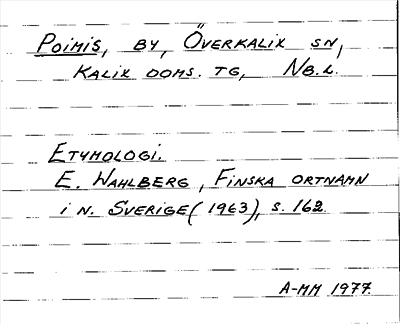 Poimis, by, Överkalix sn,
Kalix doms. tg, Nb.l.
Etymologi.
E. Wahlberg, Finska ortnamn
i N. Sverige (1963), s. 162.
A-MM 1977